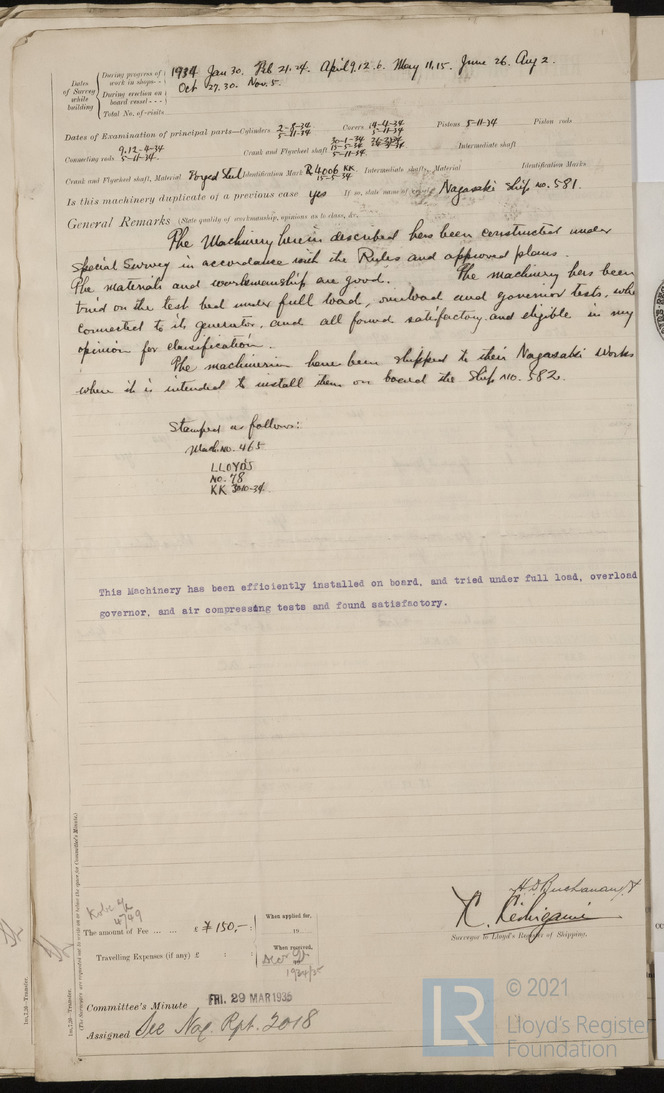 Dates of Survey while building
During progress of work in shops - -
1934 Jan 30. Feb 21.24. April 9,12.6. May 11,15. June 26. Aug 2.
Oct 27.30. Nov. 5.
During erection on board vessel - - -
Total No. of visits
Dates of Examination of principal parts—Cylinders 2-8-34 5-11-34 Covers 14-4-34 5-11-34 Pistons 5-11-34 Piston rods
Connecting rods 9,12-4-34 5-11-34. Crank and Flywheel shaft 30-1-34 15-5-34 5-11-34 Intermediate shaft
Crank and Flywheel shaft, Material Forged Steel Identification Mark R4006 KK 15-5-34 Intermediate shafts, Material Identification Marks
Is this machinery duplicate of a previous case yes If so, state name of Nagasaki Ship no. 581.
General Remarks (State quality of workmanship, opinions as to class, &c.
The Machinery herein described has been constructed under
Special Survey in accordance with the Rules and approved plans.
The materials and workmanship are good. The machinery has been
tried on the test bed under full load, overload and governor tests, whe
connected to its generator, and all found satisfactory and eligible in my
opinion for classification.
The machineries have been shipped to their Nagasaki Works
where it is intended to install them on board the Ship no. 582.
Stamped as follows:
Mach. no. 465
LLOYD'S
NO. 78
KK 30-10-34.
This Machinery has been efficiently installed on board, and tried under full load, overload
governor, and air compressing tests and found satisfactory.
Im.7.28-Transfer.
Im.7.28-Transfer.
(The Surveyors are requested not to write on or below the space for Committee's Minute.)
Kobe
4749
The amount of Fee ... ... £ ¥ 150,- : When applied for,
19
Travelling Expenses (if any) £ : : When received,
1934/35
H. D. Buchanan
K. Kishigami
Surveyor to Lloyd's Register of Shipping.
Committee's Minute FRI. 29 MAR 1935
Assigned See Nag. Rpt. 2018
LR
© 2021
Lloyd's Register
Foundation